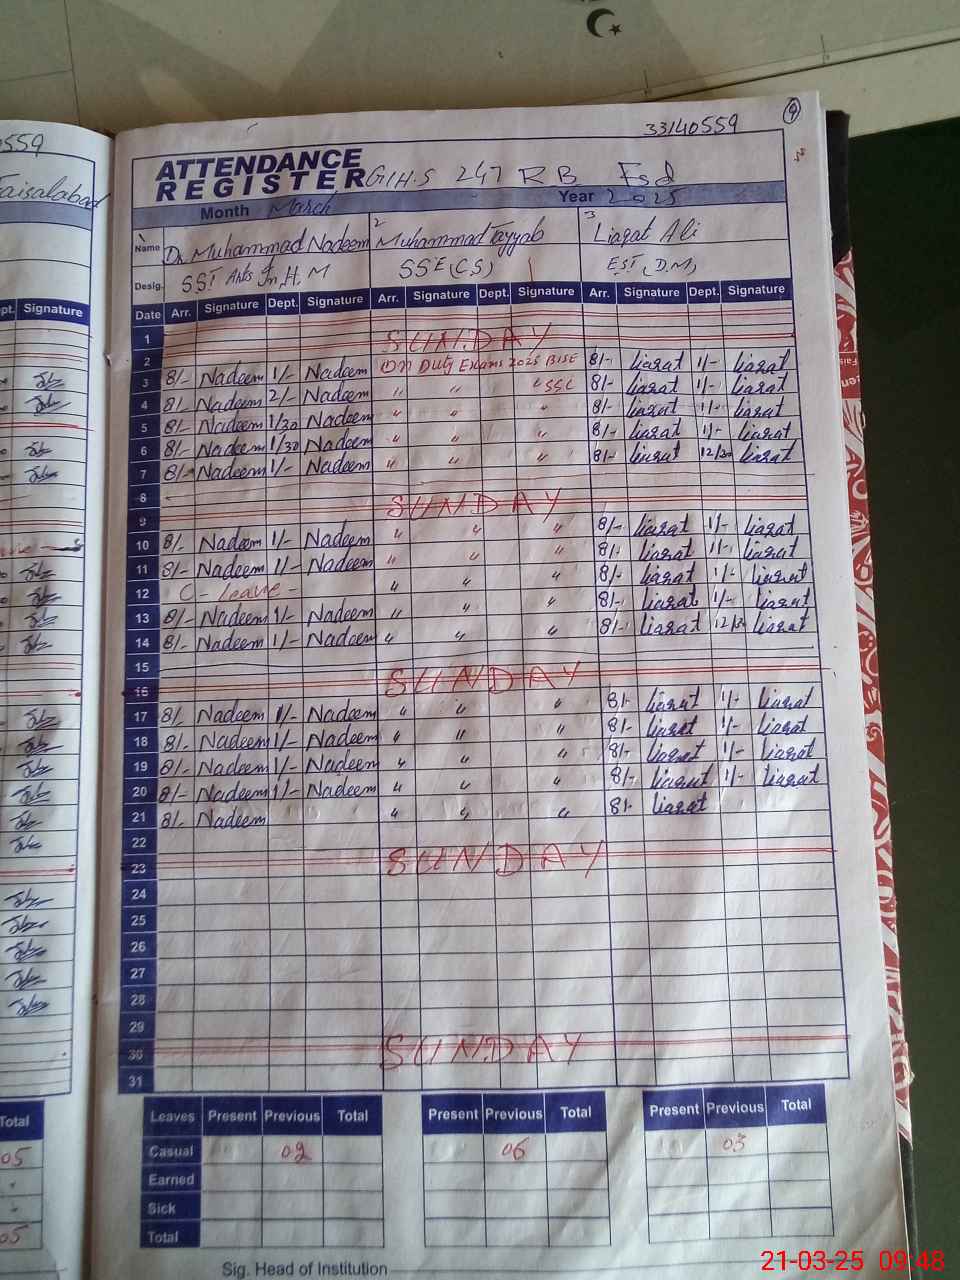 33140559
9
ATTENDANCE
REGISTER G.H.S 247 RB Fsd
Month March Year 2025
Name 1 Dr. Muhammad Nadeem 2 Muhammad Tayyab 3 Liaqat Ali
Desig. SST Arts Jn, H.M SSE (C.S) EST (D.M)
Date Arr. Signature Dept. Signature Arr. Signature Dept. Signature Arr. Signature Dept. Signature
1
SUNDAY
2 On Duty Exams 2025 BISE
3 8/- Nadeem 1/- Nadeem 8/- liaqat 1/- liaqat
4 8/- Nadeem 2/- Nadeem " " " SSC 8/- liaqat 1/- liaqat
5 8/- Nadeem 1/30 Nadeem " " " 8/- liaqat 1/- liaqat
6 8/- Nadeem 1/30 Nadeem " " " 8/- liaqat 1/- liaqat
7 8/- Nadeem 1/- Nadeem " " " 8/- liaqat 12/30 liaqat
8
SUNDAY
9
10 8/- Nadeem 1/- Nadeem " " " 8/- liaqat 1/- liaqat
11 8/- Nadeem 1/- Nadeem " " " 8/- liaqat 1/- liaqat
12 C - Leave - " " " 8/- liaqat 1/- liaqat
13 8/- Nadeem 1/- Nadeem " " " 8/- liaqat 1/- liaqat
14 8/- Nadeem 1/- Nadeem " " " 8/- liaqat 12/30 liaqat
15
SUNDAY
16
17 8/- Nadeem 1/- Nadeem " " " 8/- liaqat 1/- liaqat
18 8/- Nadeem 1/- Nadeem " " " 8/- liaqat 1/- liaqat
19 8/- Nadeem 1/- Nadeem " " " 8/- liaqat 1/- liaqat
20 8/- Nadeem 1/- Nadeem " " " 8/- liaqat 1/- liaqat
21 8/- Nadeem " " " 8/- liaqat
22
23 SUNDAY
24
25
26
27
28
29
30 SUNDAY
31
Leaves Present Previous Total Present Previous Total Present Previous Total
Casual 02 06 03
Earned
Sick
Total
Sig. Head of Institution
559
Faisalabad
pt. Signature
Total
05
05
21-03-25 09:48